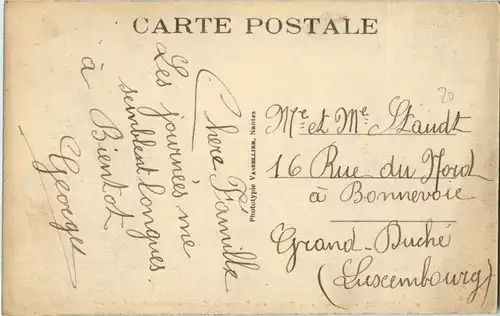 CARTE POSTALE
Chère Famille
Les journées me
semblent longues.
à Bientôt
Georges
Phototypie VASSELLIER, Nantes
20
Me et Me Staudt
16 Rue du Nord
à Bonnevoie
Grand-Duché
(Luxembourg)